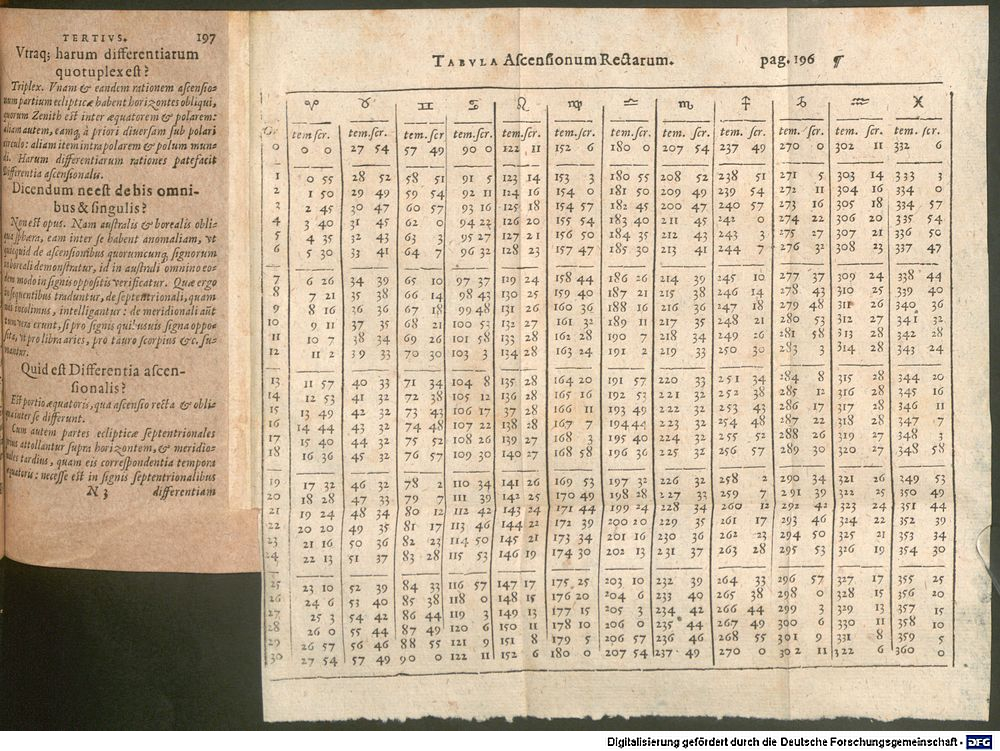 TERTIVS. 197
Vtraq; harum differentiarum
quotuplex est?
Triplex. Vnam & eandem rationem ascensio-
num partium eclipticæ habent horizontes obliqui,
quorum Zenith est inter æquatorem & polarem:
aliam autem, eamq; à priori diuersam sub polari
circulo: aliam item intra polarem & polum mun-
di. Harum differentiarum rationes patefacit
Differentia ascensionalis.
Dicendum ne est de his omni-
bus & singulis?
Non est opus. Nam australis & borealis obli-
qua sphæra, eam inter se habent anomaliam, vt
quicquid de ascensionibus quorumcunq; signorum
in boreali demonstratur, id in australi omnino eo-
dem modo in signis oppositis verificatur. Quæ ergo
in sequentibus traduntur, de septentrionali, quam
nos incolimus, intelligantur: de meridionali aũt
tum vera erunt, si pro signis quibusuis signa oppo-
sita, vt pro libra aries, pro tauro scorpius &c. su-
mantur.
Quid est Differentia ascen-
sionalis?
Est portio æquatoris, qua ascensio recta & obli-
qua inter se differunt.
Cum autem partes eclipticæ septentrionales
prius attollantur supra horizontem, & meridio-
nales tardius, quam eis correspondentia tempora
æquatoris: necesse est in signis septentrionalibus
N 3 differentiam
TABVLA Ascensionum Rectarum. pag. 196 ¶
♈ ♉ ♊ ♋ ♌ ♍ ♎ ♏ ♐ ♑ ♒ ♓
Gr. tem scr. tem. scr. tem. scr tem. scr. tem. scr. tem. scr. tem. scr. tem. scr. tem. scr. tem. scr. tem. scr. tem. scr.
0 0 0 27 54 57 49 90 0 122 11 152 6 180 0 207 54 237 49 270 0 302 11 332 6
1 0 55 28 52 58 51 91 5 123 14 153 3 180 55 208 52 238 51 271 5 303 14 333 3
2 1 50 29 49 59 54 92 11 124 16 154 0 181 50 209 49 239 54 272 11 304 16 334 0
3 2 45 30 47 60 57 93 16 125 18 154 57 182 45 200 47 240 57 273 16 305 18 334 57
4 3 40 31 45 62 0 94 22 126 20 155 54 183 40 211 45 242 0 274 22 306 20 335 54
5 4 35 32 43 63 3 95 27 127 21 156 50 184 35 212 43 243 3 275 27 307 21 336 50
6 5 30 33 41 64 7 96 32 128 23 157 47 185 30 213 41 244 7 276 32 308 23 337 47
7 6 26 34 39 65 10 97 37 129 24 158 44 186 26 214 39 245 10 277 37 309 24 338 44
8 7 21 35 38 66 14 98 43 130 25 159 40 187 21 215 38 246 14 278 43 310 25 339 40
9 8 16 36 36 67 18 99 48 131 26 160 36 188 16 216 36 247 18 279 48 311 26 340 36
10 9 11 37 35 68 21 100 53 132 27 161 32 189 11 217 35 248 21 280 53 312 27 341 32
11 10 7 38 34 69 26 101 58 133 28 162 28 190 7 218 34 249 26 281 58 313 28 342 28
12 11 2 39 33 70 30 103 3 134 28 163 24 191 2 219 33 250 30 283 3 314 28 343 24
13 11 57 40 33 71 34 104 8 135 28 164 20 191 57 220 33 251 34 284 8 315 28 344 20
14 12 53 41 32 72 38 105 12 136 28 165 16 192 53 221 32 252 38 285 12 316 28 345 16
15 13 49 42 32 73 43 106 17 137 28 166 11 193 49 222 32 253 43 286 17 317 28 346 11
16 14 44 43 32 74 48 107 22 138 28 167 7 194 44 223 32 254 48 287 22 318 28 347 7
17 15 40 44 32 75 52 108 26 139 27 168 3 195 40 224 32 255 52 288 26 319 27 348 3
18 16 36 45 32 76 57 109 30 140 27 168 58 196 36 225 32 256 57 289 30 320 27 348 58
19 17 32 46 32 78 2 110 34 141 26 169 53 197 32 226 32 258 2 290 34 321 26 349 53
20 18 28 47 33 79 7 111 39 142 25 170 49 198 28 227 33 259 7 291 39 322 25 350 49
21 19 24 48 34 80 12 112 42 143 24 171 44 199 24 228 34 260 12 292 42 323 24 351 44
22 20 20 49 35 81 17 113 46 144 22 172 39 200 20 229 35 261 17 293 46 324 22 352 39
23 21 16 50 36 82 23 114 50 145 21 173 34 201 16 230 36 262 23 294 50 325 21 353 34
24 22 13 51 37 83 28 115 53 146 19 174 30 202 13 231 37 263 28 295 53 326 19 354 30
25 23 10 52 39 84 33 116 57 147 17 175 25 203 10 232 39 264 33 296 57 327 17 355 25
26 24 6 53 40 85 38 118 0 148 15 176 20 204 6 233 40 265 38 298 0 328 15 356 20
27 25 3 54 42 86 44 119 3 149 13 177 15 205 3 234 42 266 44 299 3 329 13 357 15
28 26 0 55 44 87 49 120 6 150 11 178 10 206 0 235 44 267 49 300 6 330 11 358 10
29 26 57 56 46 88 55 121 9 151 8 179 5 206 57 236 46 268 55 301 9 331 8 359 5
30 27 54 57 49 90 0 122 11 152 6 180 0 207 54 237 49 270 0 302 11 322 6 360 0
Digitalisierung gefördert durch die Deutsche Forschungsgemeinschaft - DFG